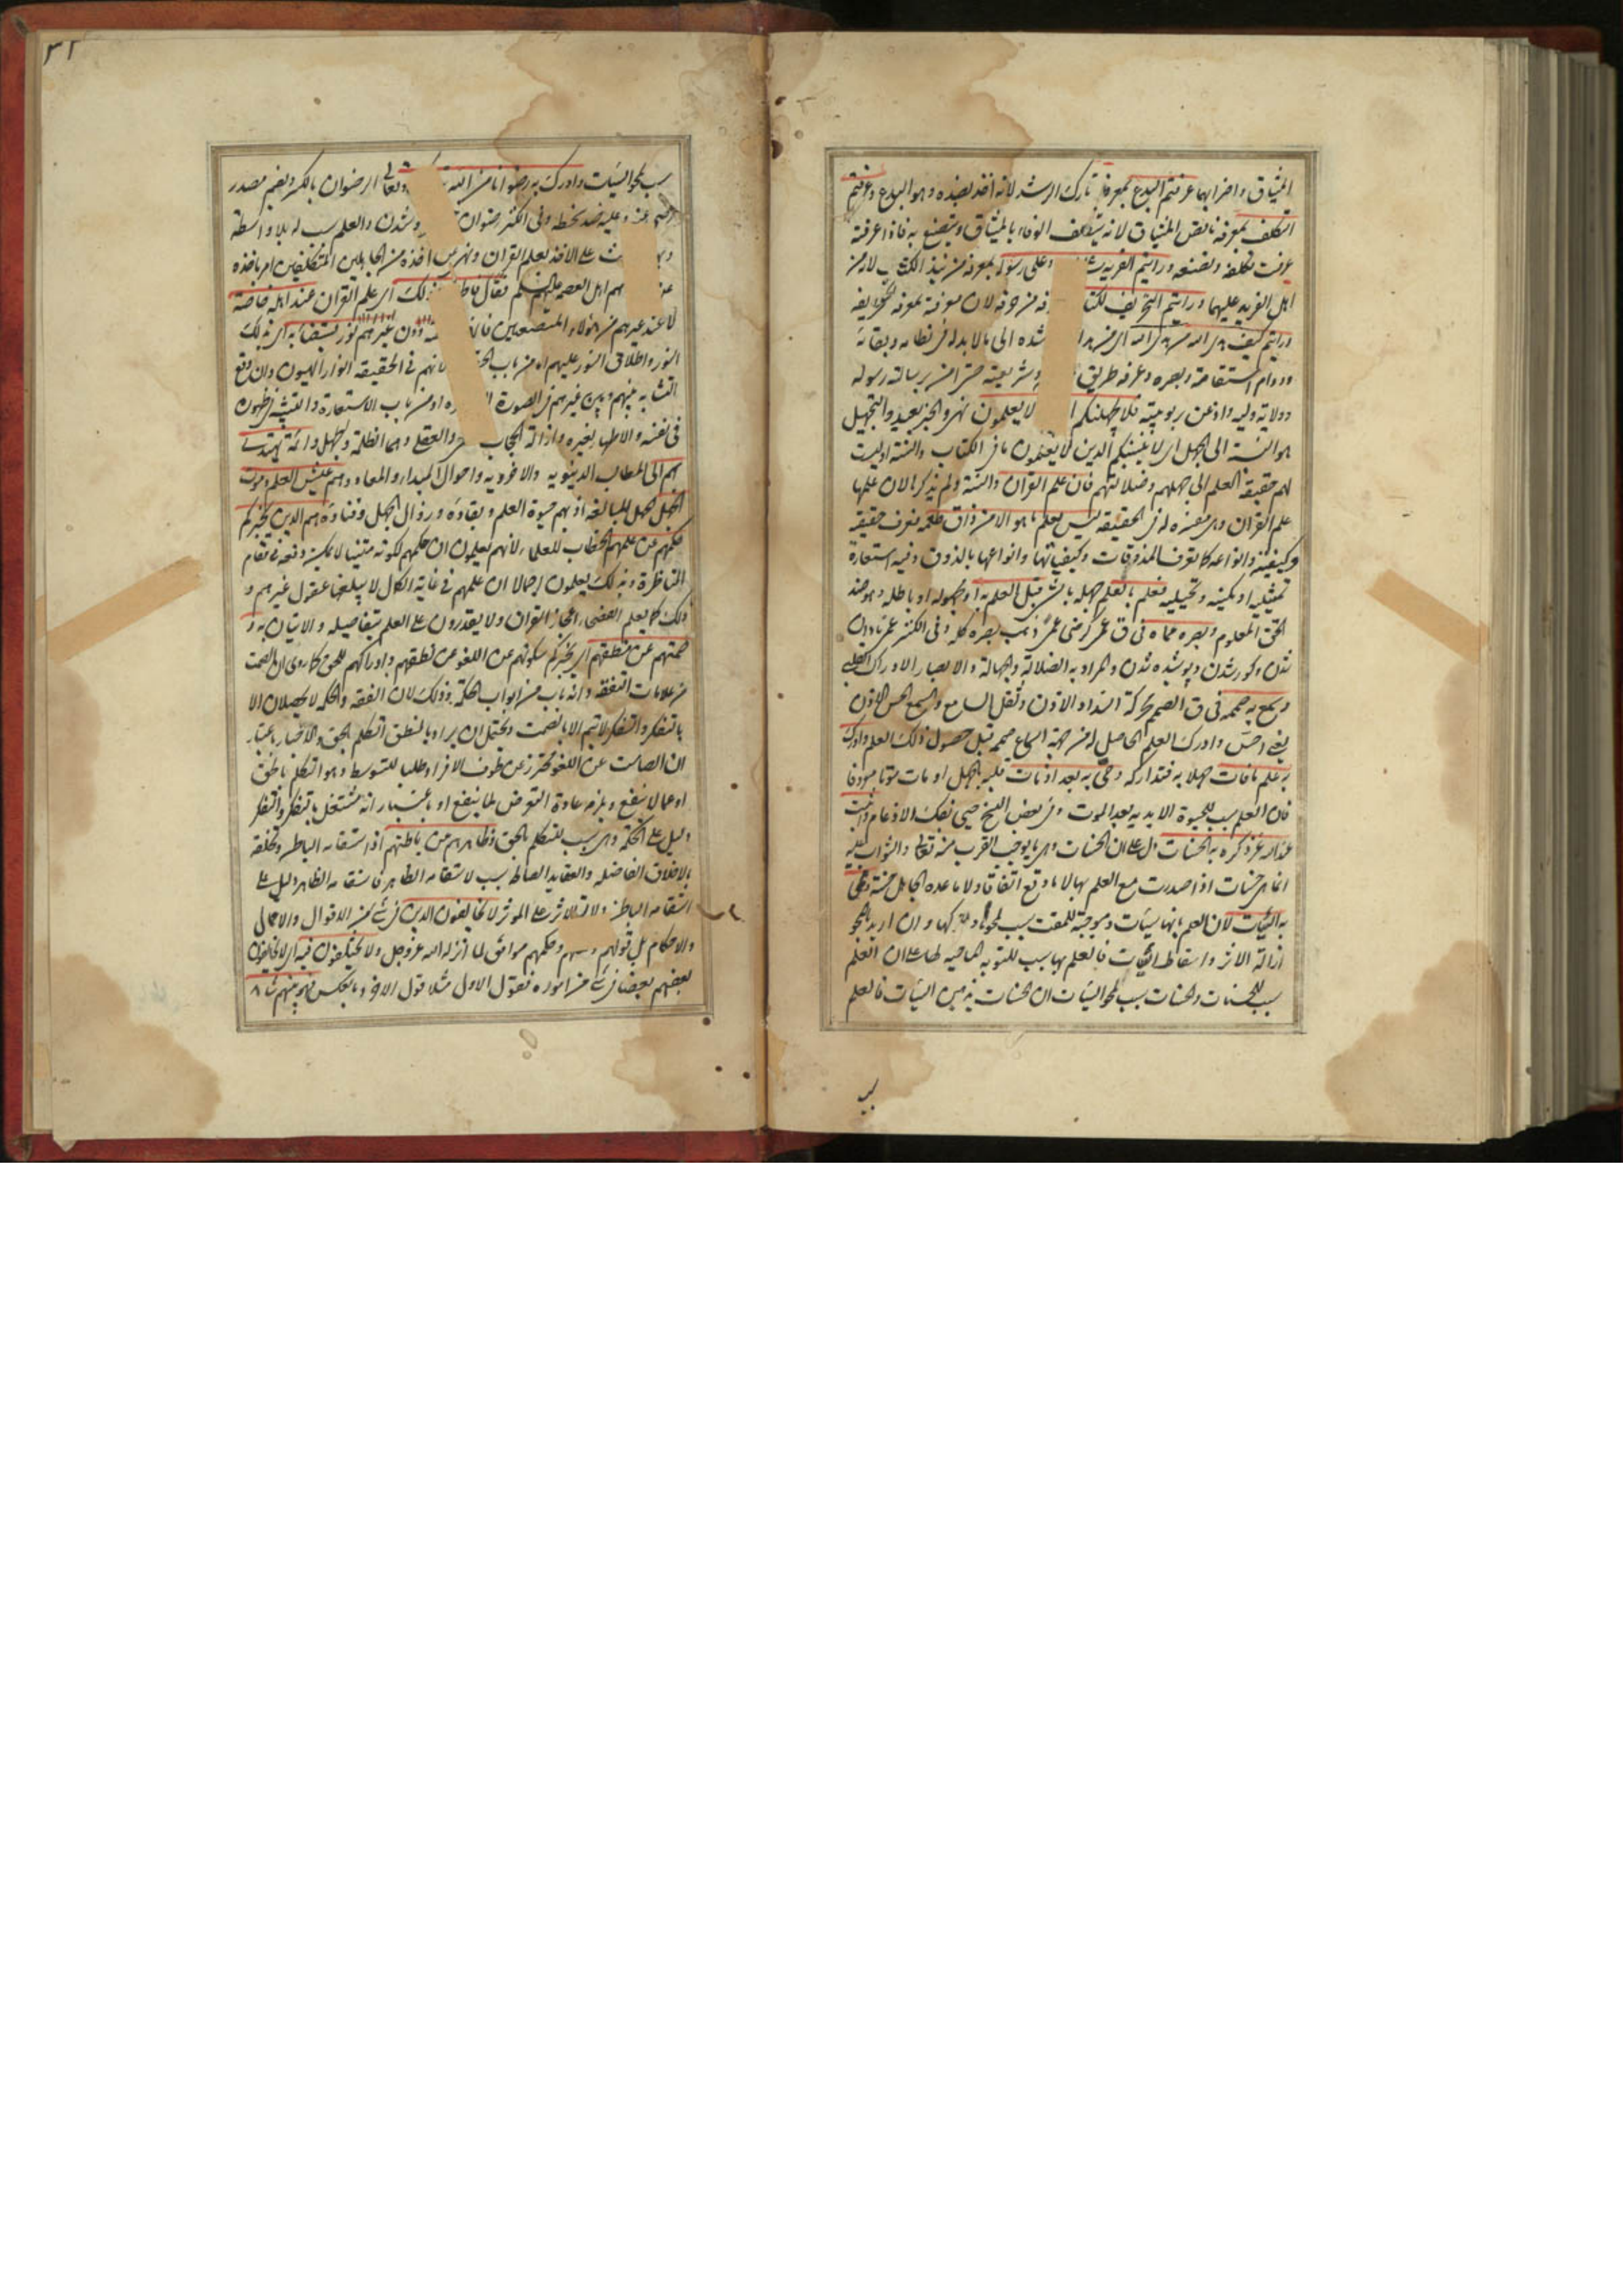 الميثاق واخرابها عرفتم البدع بمعرفة تارك الرشد لانه اخذ بضده وهو البدع وعرفتم
التكلف بمعرفة ناقض الميثاق لانه يتكلف الوفاء بالميثاق ويتصنع به فاذا عرفته
عرفت تكلفه وتصنعه ورايتم الفرية وعلى رسوله بمعرفة من نبذ الكتاب لانه من
اهل الفرية عليهما ورايتم التحريف لكتا فة من حرفه لان معرفته بمعرفة تحريفه
ورايتم كيف هدى الله من هدى الله اى من هدا شده الى ما لابد له فى نظامه وبقائه
ودوام استقامته وبصره وعرفه طريق وشريعته حتى امن برسالة رسوله
وولاية وليه واذعن بربوبيته فلا يجهلنكم ا لا يعلمون نهى والتجهيل
هو النسبة الى الجهل اى لا ينسبنكم الذين لا يعلمون ما فى الكتاب والسنة وليست
لهم حقيقة العلم الى جهلهم وضلالتهم فان علم القران والسنة ولم يذكرها لان علمها
علم القران وهى مفسرة له فى الحقيقة ليس يعلم ما هو الا من ذاق طعمه يعرف حقيقته
وكيفيته وانواعه كما تعرف المذوقات وكيفياتها وانواعها بالذوق وفيه استعارة
تمثيلية او مكنية وتخييلية فعلم بالعلم جهله قبل العلم به او مجهوله او باطله وهو ضد
الحق المعلوم وبصر به عماه فى ق عمى كرضى عمى ذهب بصره كله وفى الكنز عمى نابينا
شدن وكور شدن وپوشيده شدن والمراد به الضلالة والجهالة والابصار الادراك القلبى
وسمع به صممه فى ق الصمم محركة انسداد الاذن وثقل السامع والسمع حس الاذن
يعنى احس وادرك العلم الحاصل له من جهة السماع صممه قبل حصول ذلك العلم وادرك
به علم ما فات جهلا به فتداركه وحيى به بعد اذ مات قلبه بالجهل او مات موتا معروفا
فان العلم سبب للحيوة الابدية بعد الموت وفى بعض النسخ حيى بفك الادغام واثبت
عند الله عز ذكره به الحسنات دل على ان الحسنات وهى ما يوجب القرب منه تعالى والثواب عليه
انما هى حسنات اذا صدرت مع العلم بها لا ما وقع اتفاقا ولا ما عده الجاهل حسنة ومحى
به السيئات لان العلم بانها سيئات وموجبة للمقت سبب لمحوها وتركها وان اريد بالمحو
ازالة الاثر واسقاط فالعلم بها سبب للتوبة الماحية لها على ان العلم
سبب للحسنات والحسنات سبب لمحو السيئات ان الحسنات يذهبن السيئات فالعلم
سبب لمحو السيئات وادرك به رضوانا من الله وتعالى الرضوان بالكسر وبضم مصدر
رضى عنه وعليه ضد سخط وفى الكنز رضوان شدن والعلم سبب له بلا واسطة
على الاخذ بعلم القران ونهى عن اخذه من الجاهلين المتكلفين امر باخذه
هم اهل العصمة عليهم السلم فقال فاطلبوا ذلك اى علم القران عند اهله خاصة
لا عند غيرهم من هؤلاء المتصنعين دون غيرهم نور يستضاء به اى بذلك
النور واطلاق النور عليهم اما من باب الحقيقة فانهم فى الحقيقة انوار الهيون وان وقع
التشابه بينهم وبين غيرهم فى الصورة او من باب الاستعارة والتشبيه فى ظهوره
فى نفسه والاظهار لغيره وازالة الحجاب والعقل وهما الظلمة والجهل وائمة يهتدى
بهم الى المطالب الدنيوية والاخروية واحوال المبداء والمعاد وهم عيش العلم وموت
الجهل الحمل للمبالغة اذ بهم حيوة العلم وبقاؤه وزوال الجهل وفناؤه هم الذين يخبركم
حكمهم عن علمهم الخطاب للعلماء لانهم يعلمون ان حكمهم لكونه متينا لا يمكن دفعه فى مقام
المناظرة وبذلك يعلمون اجمالا ان علمهم فى غاية الكمال لا يبلغها عقول غيرهم و
ذلك كما يعلم الفصحاء اعجاز القران ولا يقدرون على العلم بتفاصيله والاتيان به و
صمتهم عن منطقهم اى يخبركم سكوتهم عن اللغو عن نطقهم وادراكهم للحق كما روى ان الصمت
من علامات التفقه وانه باب من ابواب الحكمة وذلك لان الفقه والحكمة لا يحصلان الا
بالتفكر والتفكر لا يتم الا بالصمت ويحتمل ان يراد بالمنطق التكلم بالحق والاخبار باعتبار
ان الصامت عن اللغو محترز عن طرف الافراط طلبا للتوسط وهو التكلم بالحق
او عما لا ينفع ويلزمه عادة التعرض لما ينفع او باعتبار انه مشتغل بالتفكر والتفكر
دليل على الحكمة وهى سبب للتكلم بالحق وظاهرهم عن باطنهم اذ استقامة الباطن وتخلقه
بالاخلاق الفاضلة والعقايد الصالحة سبب لاستقامة الظاهر فاستقامة الظاهر دليل على
استقامة الباطن ولالة الاثر على الموثر لا يخالفون الدين فى شئ من الاقوال والاعمال
والاحكام بل قولهم وحكمهم موافق لما انزله الله عز وجل ولا يختلفون فيه اى لا يخالف
بعضهم بعضا فى شئ من اموره فيقول الاول مثلا قول الاخر وبالعكس فهو بينهم شا